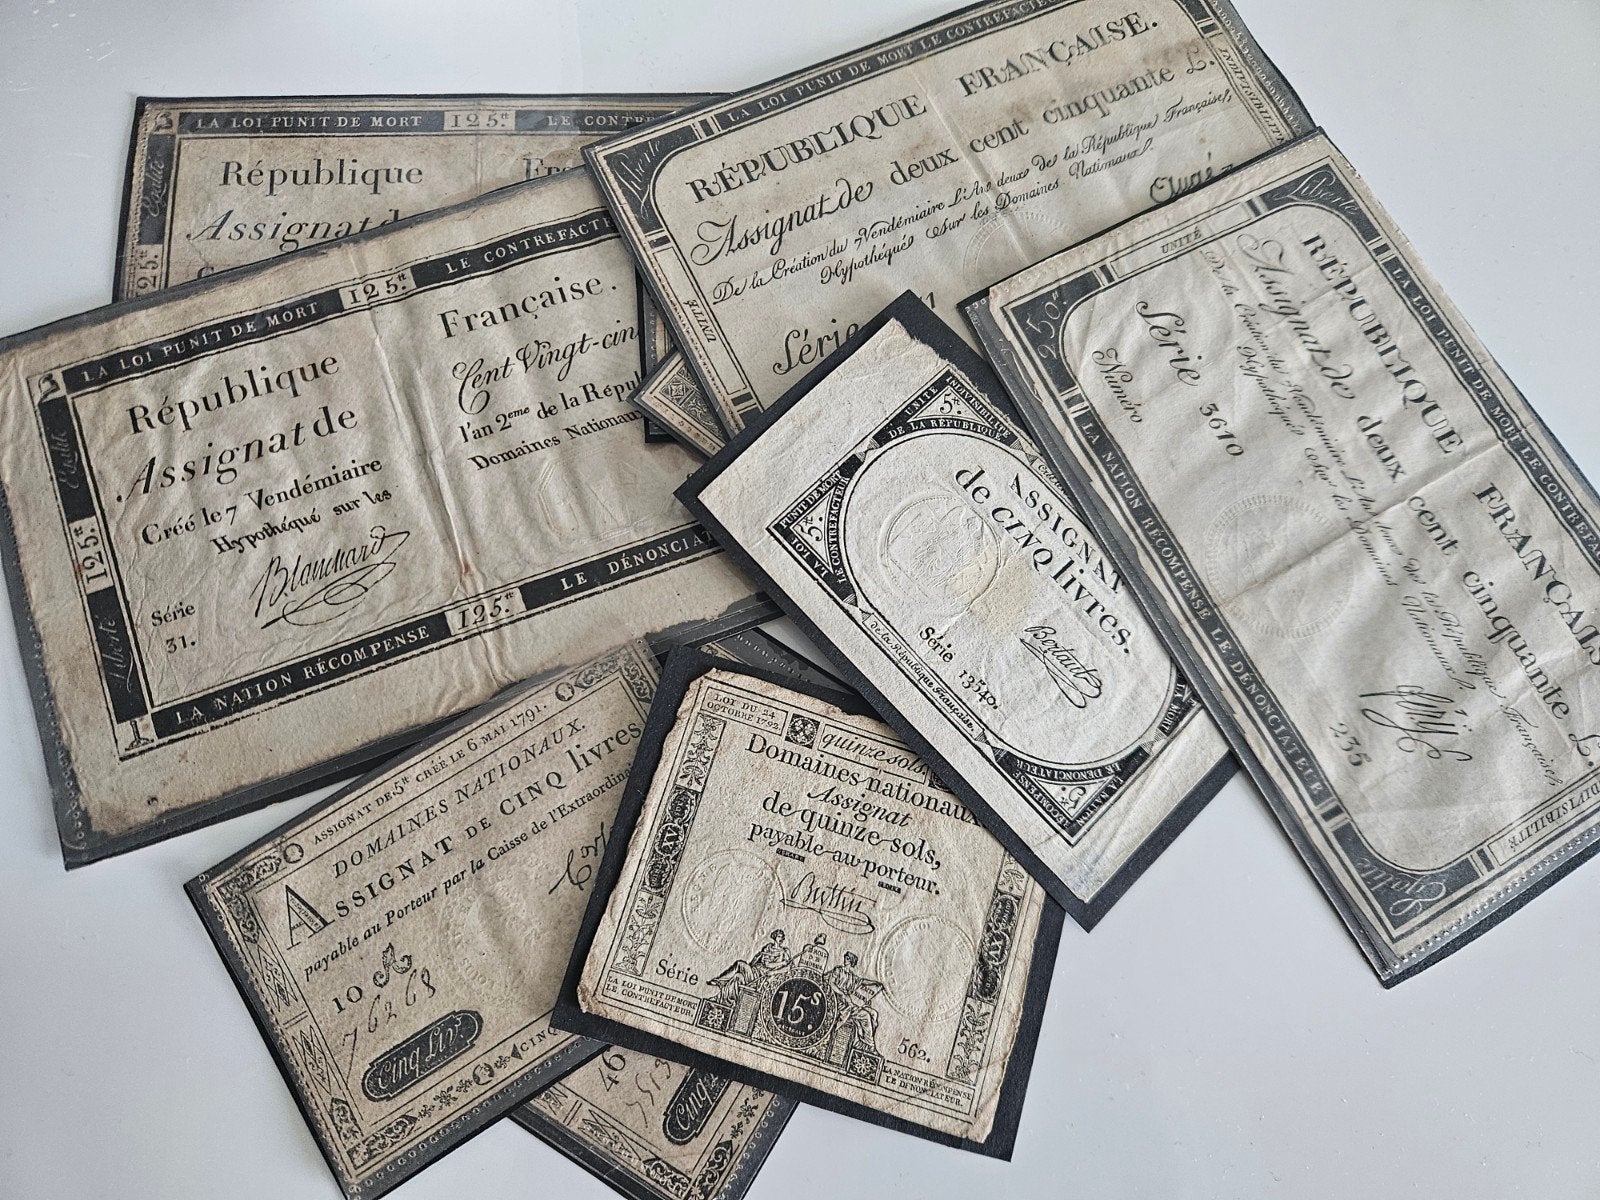 LA LOI PUNIT DE MORT 125.tt LE CONTRE
Egalité
125.
République
Assignat
LA LOI PUNIT DE MORT 125.tt LE CONTREFACT
Egalité
125.tt
Liberté
République Française.
Assignat de Cent Vingt-cin
Créé le 7 Vendémiaire l'an 2eme de la Répub
Hypothéqué sur les Domaines Nationau
Blanchard
Série
31.
LA NATION RÉCOMPENSE 125.tt LE DÉNONCIAT
LA LOI PUNIT DE MORT LE CONTREFACTE
INDIVISIBILITÉ
Liberté
UNITÉ
RÉPUBLIQUE FRANÇAISE.
Assignat de deux cent cinquante L.
De la Création du 7 Vendémiaire L'An deux de la République Française,
Hypothéqué Sur les Domaines Nationaux.
Série
Liberté
LA LOI PUNIT DE MORT LE CONTREFA
UNITÉ
250.tt
RÉPUBLIQUE FRANÇAIS
Assignat de deux cent cinquante L.
De la Création du 7 Vendémiaire L'An deux de la République Française,
Hypothéqué Sur les Domaines Nationaux.
Série 3610
Numéro
235
LA NATION RÉCOMPENSE LE DÉNONCIATEUR
DIVISIBILITÉ
UNITÉ INDIVISIBILITÉ
5.tt
DE LA RÉPUBLIQUE
LA LOI PUNIT DE MORT
5.tt
LE CONTREFACTEUR
ASSIGNAT
de CINQ livres.
Bertaut
Série 13540.
de la République Française.
LA NATION RÉCOMPENSE
5.tt
LE DÉNONCIATEUR
ASSIGNAT DE 5.tt CRÉE LE 6 MAI 1791.
DOMAINES NATIONAUX.
ASSIGNAT DE CINQ livres
payable au Porteur par la Caisse de l'Extraordina
10 A
76268
Cinq Liv.
CINQ
LOI DU 24
OCTOBRE 1792
quinze sols
Domaines nationaux
Assignat
de quinze sols,
payable au porteur.
Buttin
XV
Série
562.
LA LOI PUNIT DE MORT
LE CONTREFACTEUR.
15s.
LA NATION RÉCOMPENSE
LE DÉNONCIATEUR.
46
Cinq